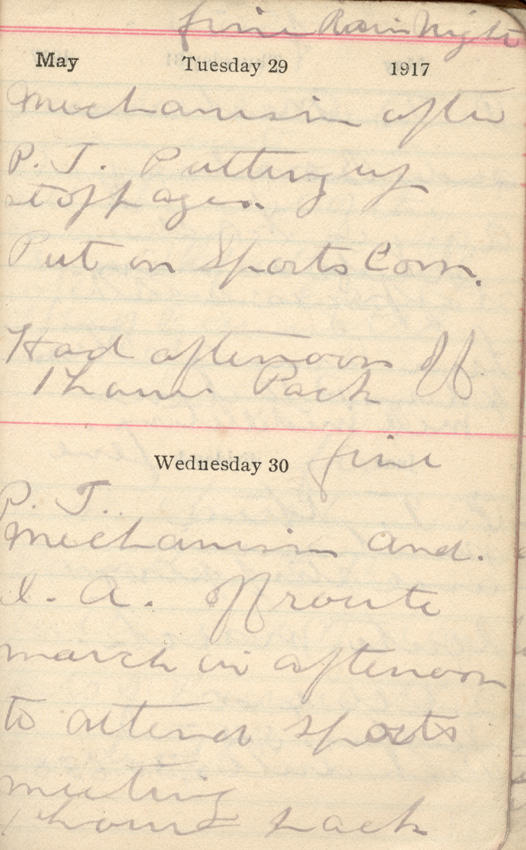 fine Rain Night
May Tuesday 29 1917
Mechanism after
P. T. Putting up
stoppages.
Put on Sports Com.
Had afternoon Off
1 hours Pack
Wednesday 30 fine
P. T.
Mechanism and.
I. A. Off route
march in afternoon
to attend sports
meeting
1 hours pack